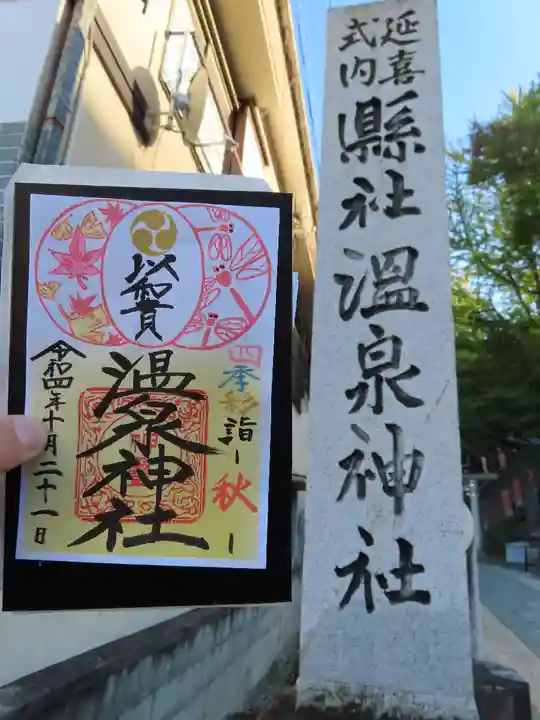 延喜
式内
縣社温泉神社
四季彩詣ー秋ー
以和貴
温泉神社
令和四年十月二十一日